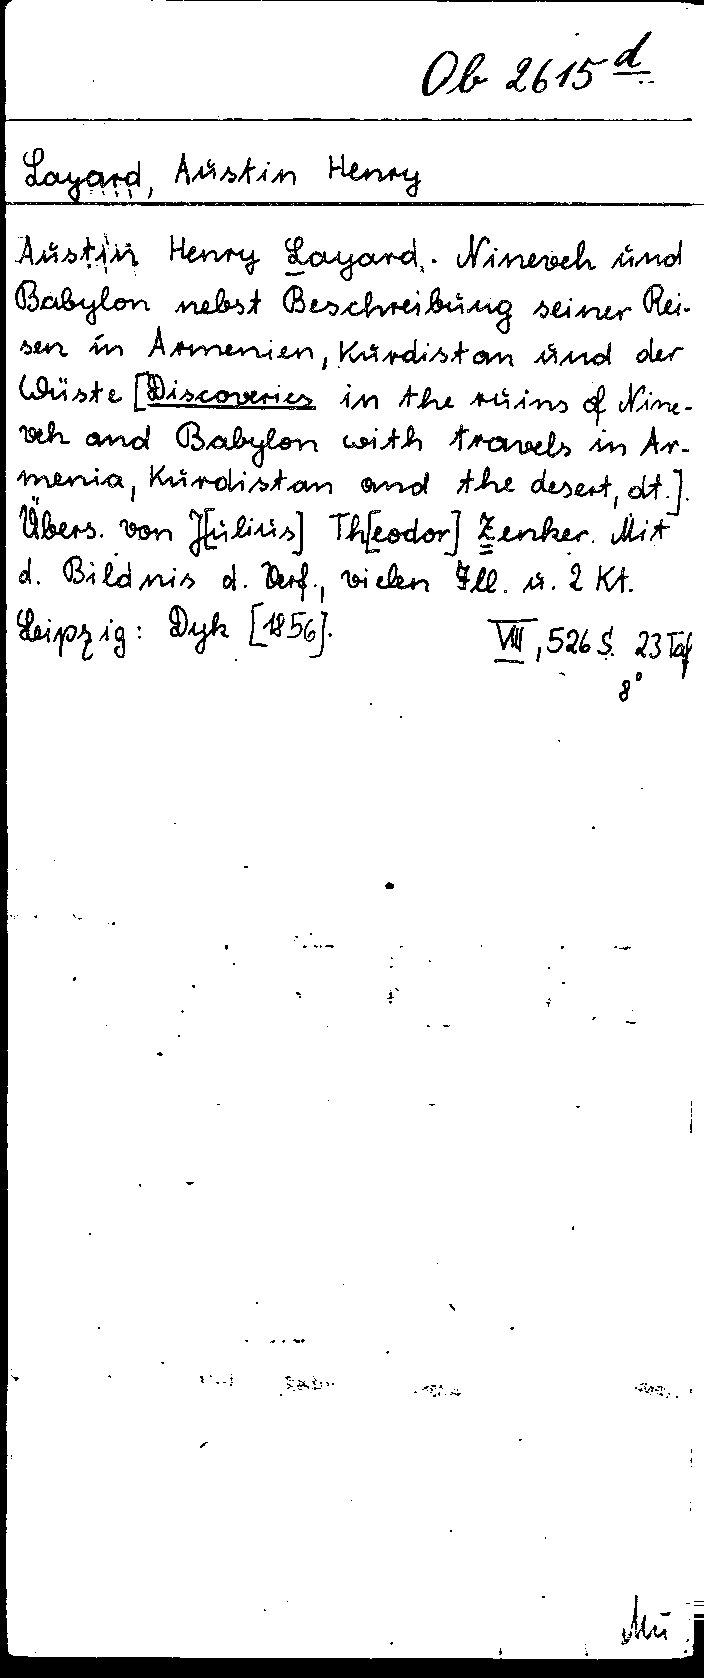 Ob 2615 d
Layard, Austin Henry
Austin Henry Layard. Nineveh und
Babylon nebst Beschreibung seiner Rei-
sen in Armenien, Kurdistan und der
Wüste [Discoveries in the ruins of Nine-
veh and Babylon with travels in Ar-
menia, Kurdistan and the desert, dt.].
Übers. von J[ulius] Th[eodor] Zenker. Mit
d. Bildnis d. Verf., vielen Ill. u. 2 Kt.
Leipzig: Dyk [1856]. VIII, 526 S. 23 Taf
8°
Mü